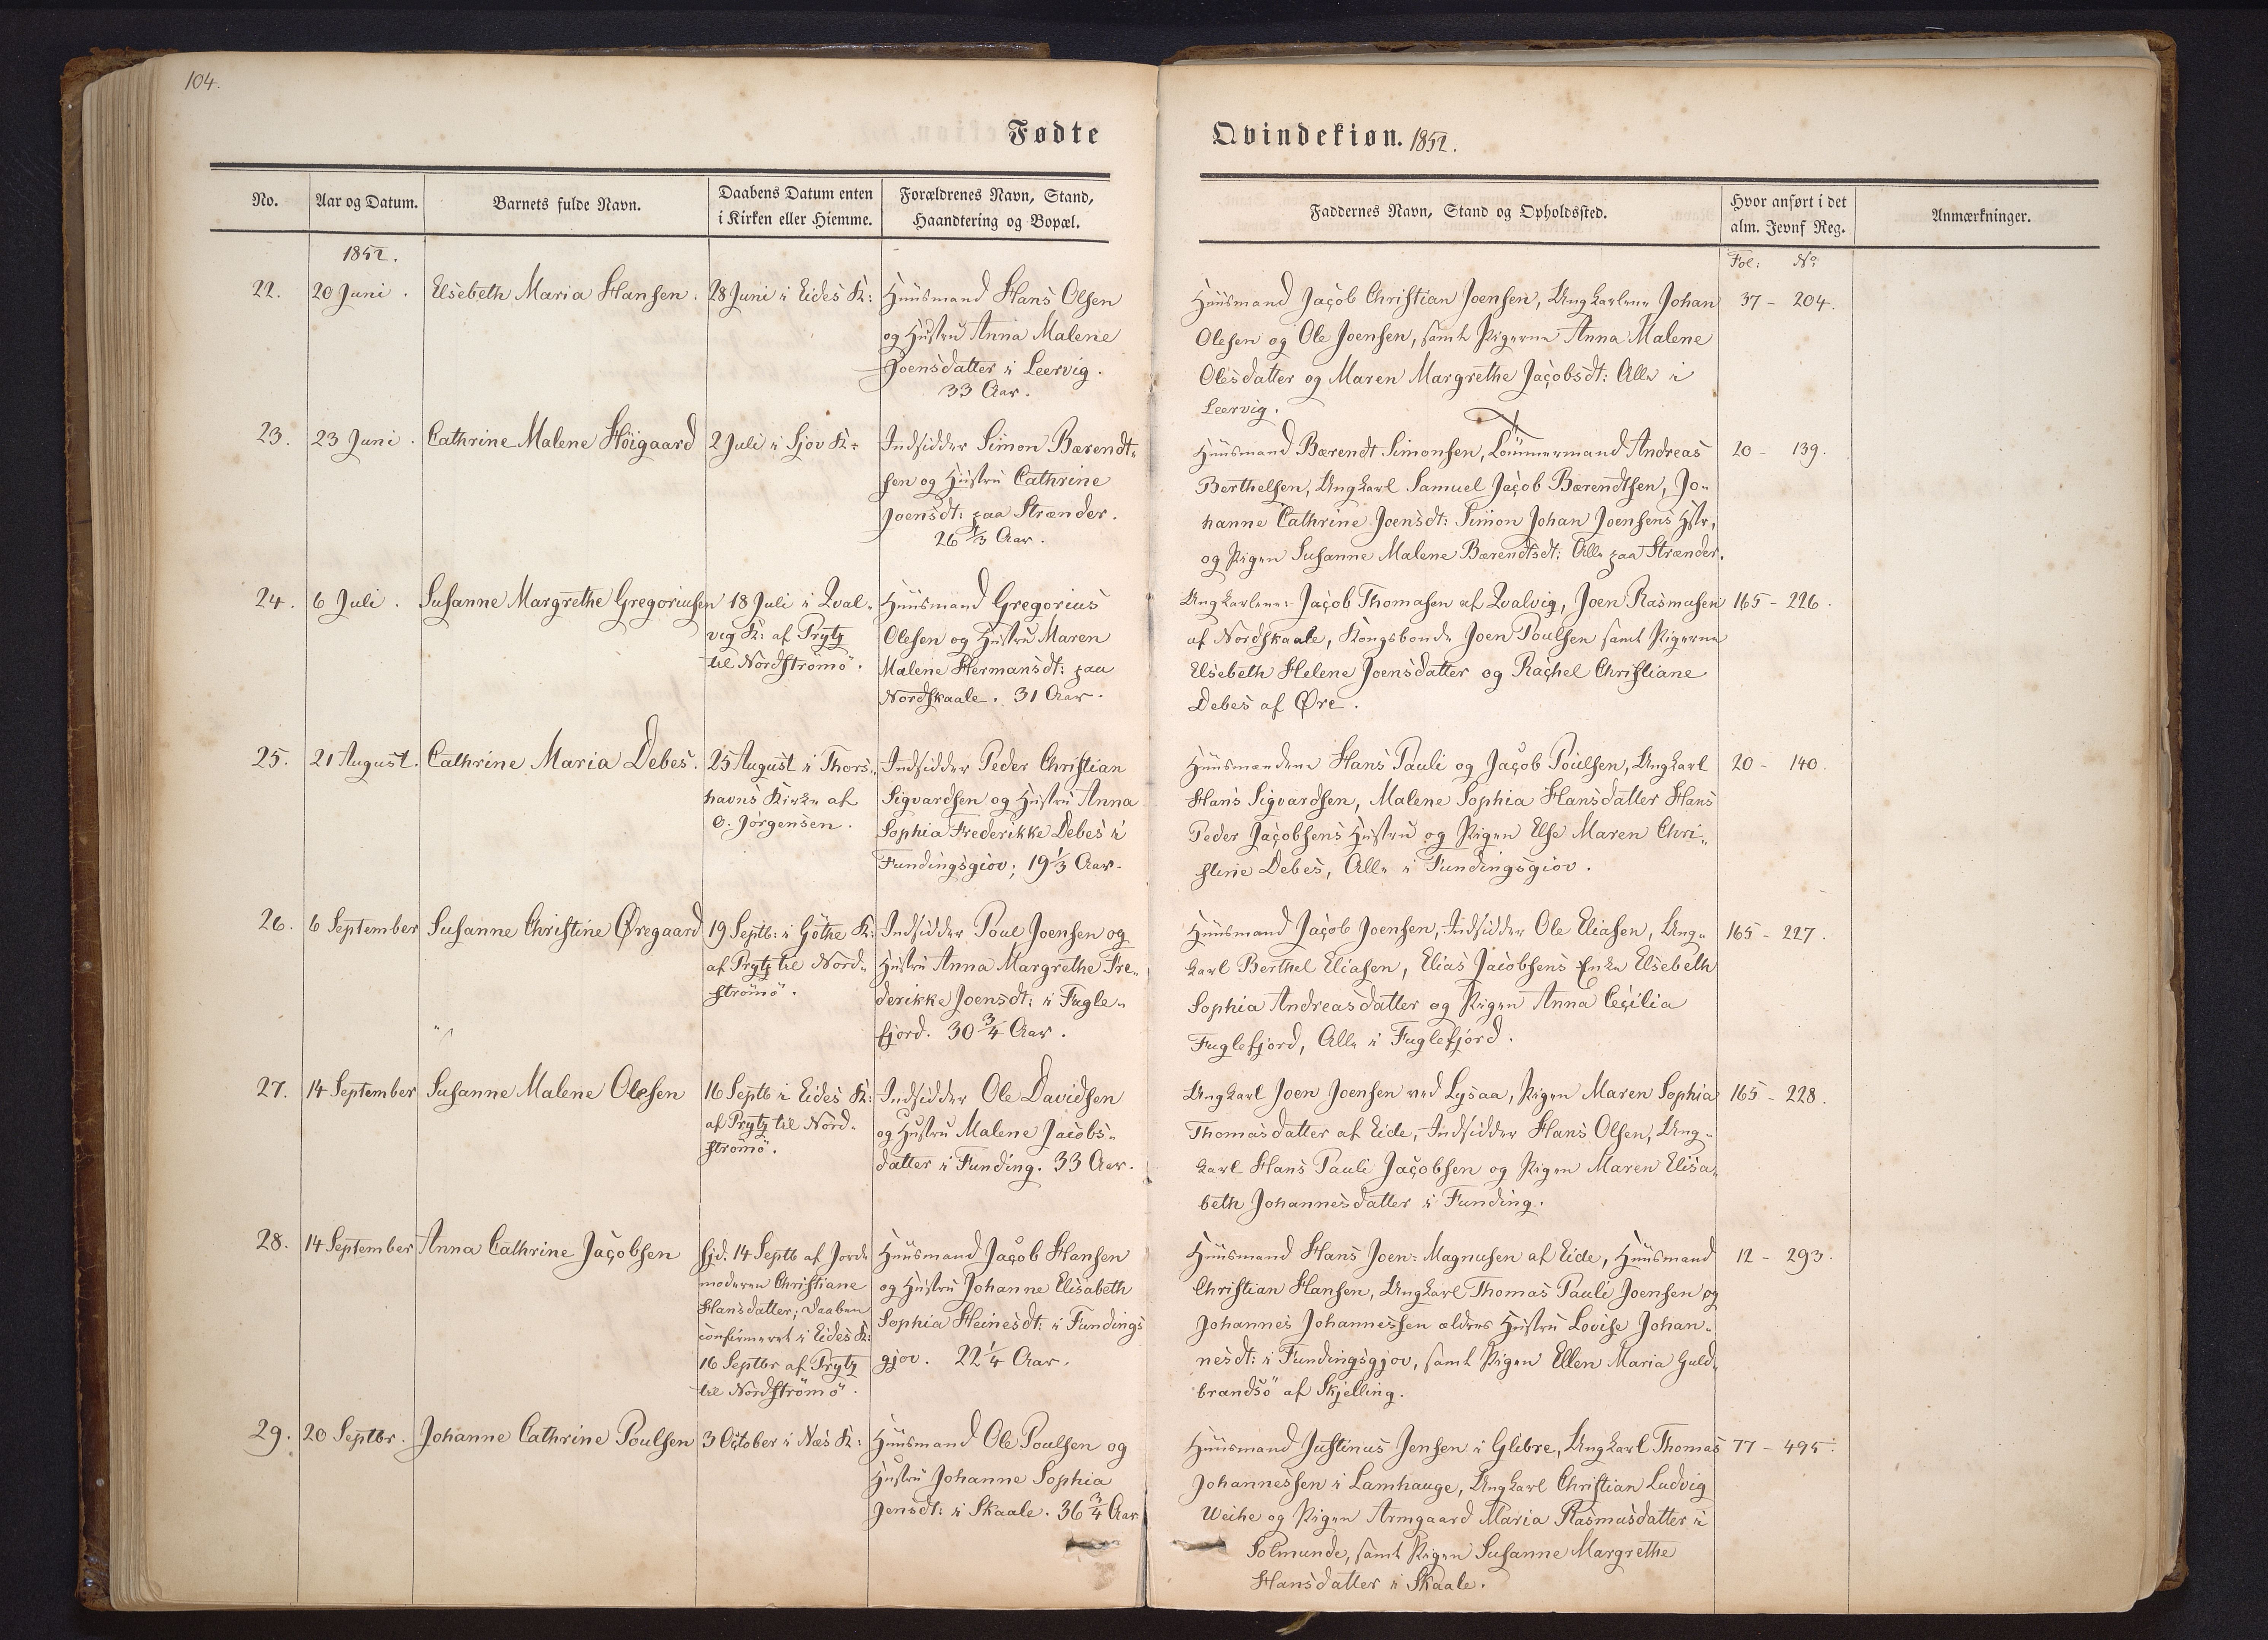 104.
Fødte
No.
Aar og Datum.
Barnets fulde Navn.
Daabens Datum enten
i Kirken eller Hiemme.
Forældrenes Navn, Stand,
Haandtering og Bopæl.
1852.
22.
20 Juni.
Elsebeth Maria Hansen.
28 Juni i Eides K:
Huusmand Hans Olsen
og Hustru Anna Malene
Joensdatter i Leervig.
33 Aar.
23.
23 Juni.
Cathrine Malene Höigaard
2 Juli i Sjov K:
Indsidder Simon Bærendt-
sen og Hustru Cathrine
Joensdt: paa Strænder.
26 1/3 Aar.
24.
6 Juli.
Susanne Margrethe Gregoriusen
18 Juli i Qval-
vig K: af Prytz
til Nordströmö.
Huusmand Gregorius
Olesen og Hustru Maren
Malene Hermansdt: paa
Nordskaale. 31 Aar.
25.
21 August.
Cathrine Maria Debes.
25 August i Thors-
havns Kirke af
O. Jörgensen.
Indsidder Peder Christian
Sigvardsen og Hustru Anna
Sophia Frederikke Debes i
Fundingsgiov; 19 1/3 Aar.
26.
6 September
Susanne Christine Øregaard
19 Septb: i Göthe K:
af Prytz til Nord-
strömö.
Indsidder Poul Joensen og
Hustru Anna Margrethe Fre-
derikke Joensdt: i Fugle-
fjord. 30 3/4 Aar.
27.
14 September
Susanne Malene Olesen
16 Septb i Eides K:
af Prytz til Nord-
strömö.
Indsidder Ole Davidsen
og Hustru Malene Jacobs-
datter i Funding. 33 Aar.
28.
14 September
Anna Cathrine Jacobsen
hjd. 14 Septb af Jorde
moderen Christiane
Hansdatter; Daaben
confirmeret i Eides K:
16 Septbr af Prytz
til Nordströmö.
Huusmand Jacob Hansen
og Hustru Johanne Elisabeth
Sophia Heinesdt: i Fundings
gjov. 22 1/4 Aar.
29.
20 Septbr.
Johanne Cathrine Poulsen
3 October i Næs K:
Huusmand Ole Poulsen og
Hustru Johanne Sophia
Jensdt: i Skaale. 36 3/4 Aar
Qvindekiøn. 1852.
Faddernes Navn, Stand og Opholdssted.
Hvor anført i det
alm. Jevnf Reg.
Anmærkninger.
Fol: No:
Huusmand Jacob Christian Joensen, Ungkarlene Johan
Olesen og Ole Joensen, samt Pigerne Anna Malene
Olesdatter og Maren Margrethe Jacobsdt: Alle i
Leervig.
37 - 204.
Huusmand Bærendt Simonsen, Andreas
Berthelsen, Ungkarl Samuel Jacob Bærendtsen, Jo-
hanne Cathrine Joensdt: Simon Johan Joensens Hstr,
og Pigen Susanne Malene Bærendtsdt: Alle paa Strænder.
20 - 139.
Ungkarlene: Jacob Thomasen af Qvalvig, Joen Rasmusen
af Nordskaale, Kongsbonde Joen Poulsen samt Pigerne
Elsebeth Helene Joensdatter og Rachel Christiane
Debes af Øre.
165 - 226.
Huusmændene Hans Pauli og Jacob Poulsen, Ungkarl
Hans Sigvardsen, Malene Sophia Hansdatter Hans
Peder Jacobsens Hustru og Pigen Else Maren Chri-
stine Debes, Alle i Fundingsgiov.
20 - 140.
Huusmand Jacob Joensen, Indsidder Ole Eliasen, Ung-
karl Berthel Eliasen, Elias Jacobsens Enke Elsebeth
Sophia Andreasdatter og Pigen Anna Cecilia
Fuglefjord, Alle i Fuglefjord.
165 - 227.
Ungkarl Joen Joensen ved Lysaa, Pigen Maren Sophia
Thomasdatter af Eide, Indsidder Hans Olsen, Ung-
karl Hans Pauli Jacobsen og Pigen Maren Elisa-
beth Johannesdatter i Funding.
165 - 228.
Huusmand Hans Joen: Magnusen af Eide, Huusmand
Christian Hansen, Ungkarl Thomas Pauli Joensen og
Johannes Johannessen ældres Hustru Lovise Johan-
nesdt: i Fundingsgjov, samt Pigen Ellen Maria Guld-
brandsö af Skjelling.
12 - 293.
Huusmand Justinus Jensen i Glibre, Ungkarl Thomas
Johannessen i Lamhauge, Ungkarl Christian Ludvig
Weihe og Pigen Armgaard Maria Rasmusdatter i
Solmunde, samt Pigen Susanne Margrethe
Hansdatter i Skaale.
77 - 495.